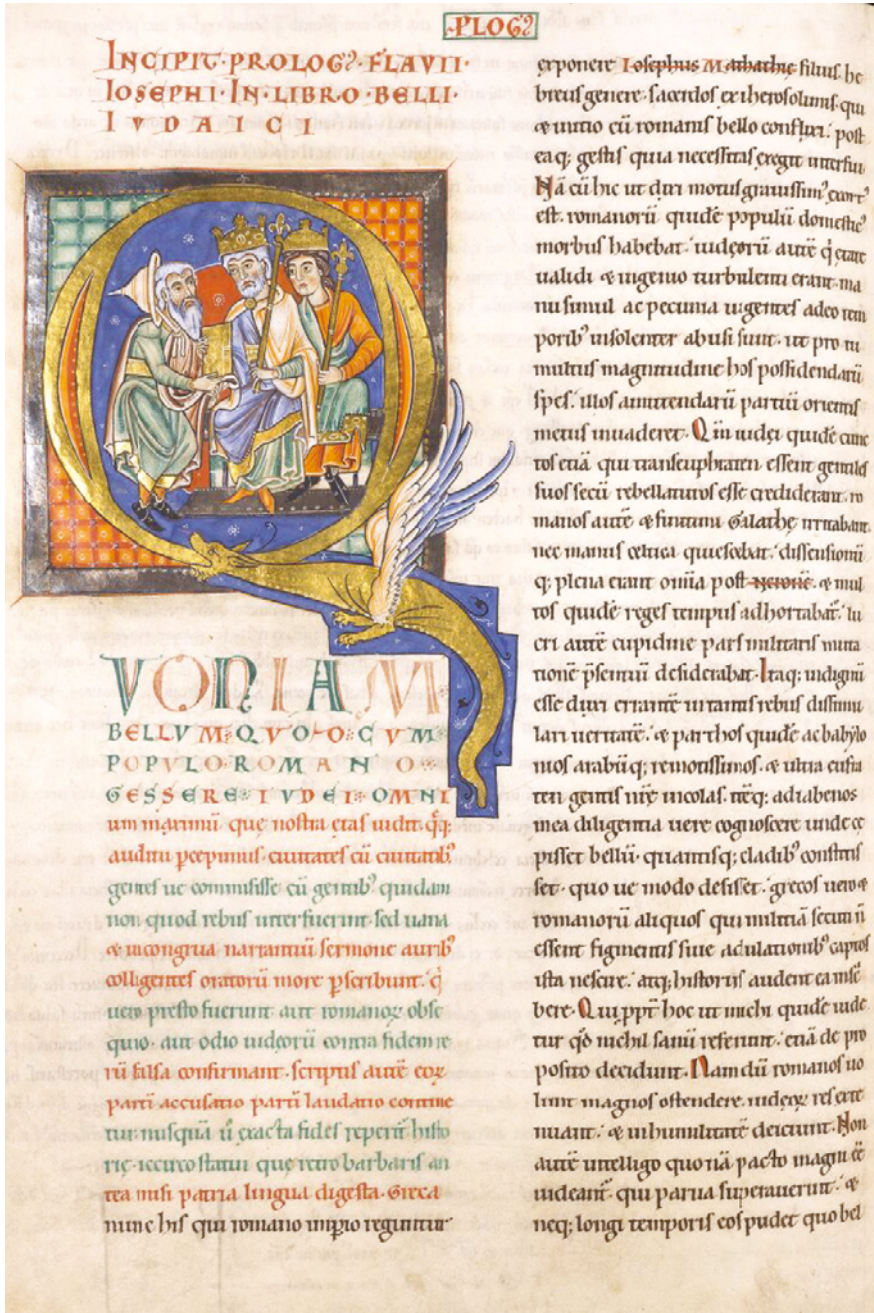 PLOGꝰ
INCIPIT·PROLOGꝰ·FLAVII·
IOSEPHI·IN·LIBRO·BELLI·
IVDAICI
QVONIAM
BELLVM·QVOD·CVM·
POPVLO·ROMANO·
GESSERE·IVDEI·OMNI
um maximū que nostra etas uidit. q̄q;
auditu pcepimus. ciuitates cū ciuitatibꝰ
gentes ue commisisse cū gentibꝰ quidam
non quod rebus interfuerint sed uana
& incongrua narrantiū sermone auribꝰ
colligentes oratorū more pscribunt. q̄
uero presto fuerunt aut romanoꝝ obse
quio. aut odio iudeorū contra fidem re
rū falsa confirmant. scriptis autē eoꝝ
parti accusatio parti laudatio contine
tur nusquā ū exacta fides reperit histo
rię. iccirco statui que retro barbaris an
tea misi patria lingua digesta. Greca
nunc his qui romano impio reguntur
exponere Iosephus Mathathie filius. he
breus genere. sacerdos ex iherosolimis. qui
& initio cū romanis bello conflixi. post
ea q; gestis quia necessitas exegit interfui
Nā cū hic ut dixi motus grauissimꝰ exortꝰ
est. romanorū quidē populū domesticꝰ
morbus habebat. iudęorū autē q̄ etate
ualidi & ingenio turbulenti erant. ma
nu simul ac pecunia uigentes adeo tem
poribꝰ insolenter abusi sunt. ut pro tu
multus magnitudine hos possidendarū
spes. illos amittendarū partiū orientis
metus inuaderet. Qm̄ iudei quidē cunc
tos etiā qui trans eufraten essent gentiles
suos secū rebellaturos esse crediderant. ro
manos autē & finitimi Galathę irritabant.
nec manus celtica quiescebat. dissensionū
q; plena erant om̄ia post neronē. & mul
tos quidē reges tempus adhortabat. lu
cri autē cupidine pars militaris muta
tionē psentiū desiderabat. Itaq; indignū
esse duxi errantē in tantis rebus dissimu
lari ueritatē. & parthos quidē ac babylo
nios arabūq; remotissimos. & ultra eufra
ten gentis nr̄e incolas. itēq; adiabenos
mea diligentia uere cognoscere unde ce
pisset bellū. quantisq; cladibꝰ constitis
set. quo ue modo desisset. grecos uero &
romanorū aliquos qui militiā secuti n̄
essent figmentis siue adulationibꝰ captos
ista nescire. atq; historiis audent eam inscri
bere. Qui ppt̄ hoc ut michi quidē uide
tur qd̄ nichil sanū referunt. etiā de pro
posito decidunt. Nam dū romanos uo
lunt magnos ostendere. iudeoꝝ res exte
nuant. & in humilitatē deiciunt. Non
autē intelligo quo nā pacto magni eē
uideant. qui parua superauerint. &
neq; longi temporis eos pudet quo bel